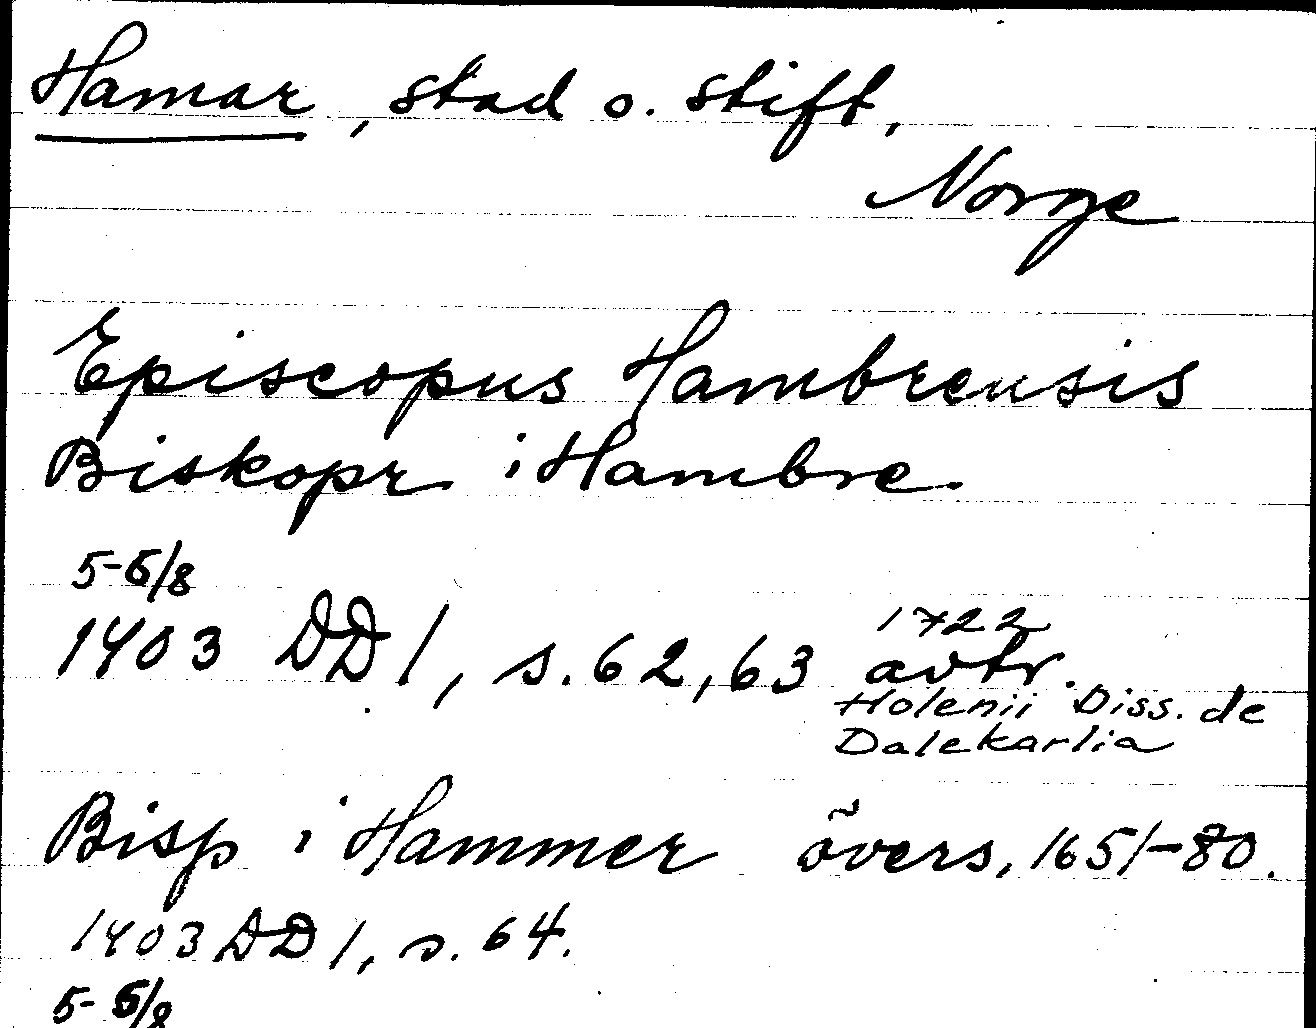 Hamar, stad o. stift,
Norge
Episcopus Hambrensis
Biskopr i Hambre.
5-6/8
1403 DD 1, s. 62, 63 avtr. 1722
Holenii Diss. de
Dalekarlia
Bisp i Hammer övers, 1651-80.
1403 DD 1, s. 64.
5-6/8